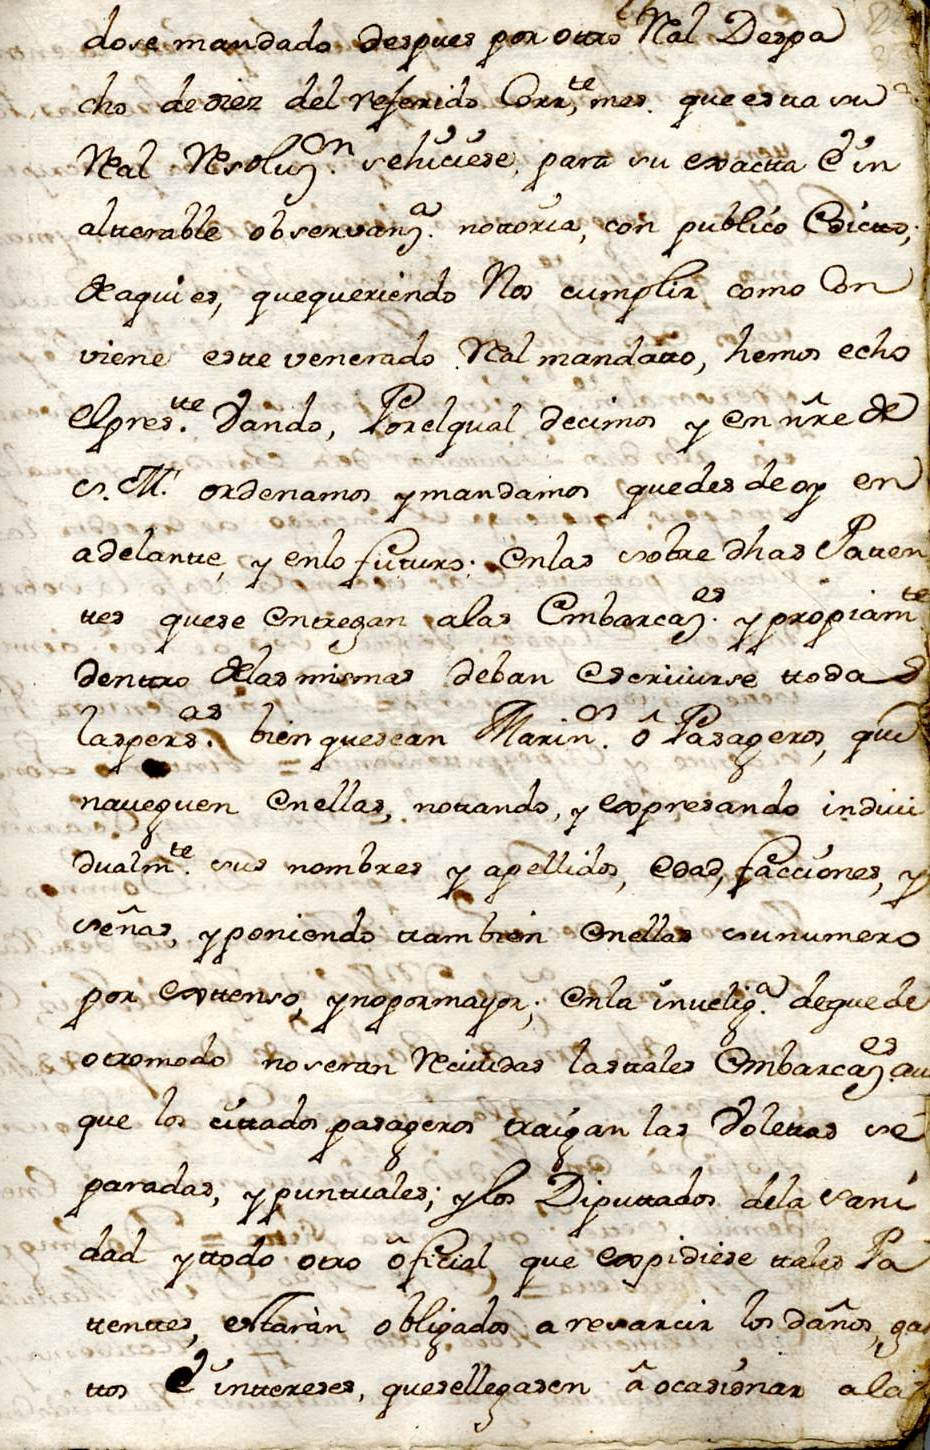 dose mandado despues por ottro Rāl Despa
cho de diez del referido Corrte, mes. que esta su
Real Resoluzon. sehiciese, para su exactta é in
altterable observanza. nottoria, con publico Edicto;
deaqui es, quequeriendo Nos cumplir como Con
viene estte venerado Real mandatto, hemos echo
elpres.tte Vando, Porelqual decimos y en nr̃e de
S. M. ordenamos ymandamos quedesde oy en
adelantte, y enlo futuro; enlas sobre dhas Patten
ttes quese entregan alas Embarcazes. y propiamte
denttro delas mismas deban escriuirse ttodas
laspersas. bien quesean Marinos. ô Pasageros, que
naueguen enellas, nottando, y expresando indiui
dualmte. sus nombres y apellidos, edad, facciones, y
señas, yponiendo ttambien enellas sunumero
por exttenso, ynopormayor; enla intelig.a deque de
ottromodo noseran Reciuidas lasttales Embarcazes. au
que los cittados pasageros traigan las Volettas se
paradas, y punttuales; ylos Diputtados dela Sani
dad yttodo otro oficial que expidiese ttales Pa
tenttes, estaràn obligados a resarcir los daños, gas
ttos é inttereses, quesellegasen â ocasionar alas